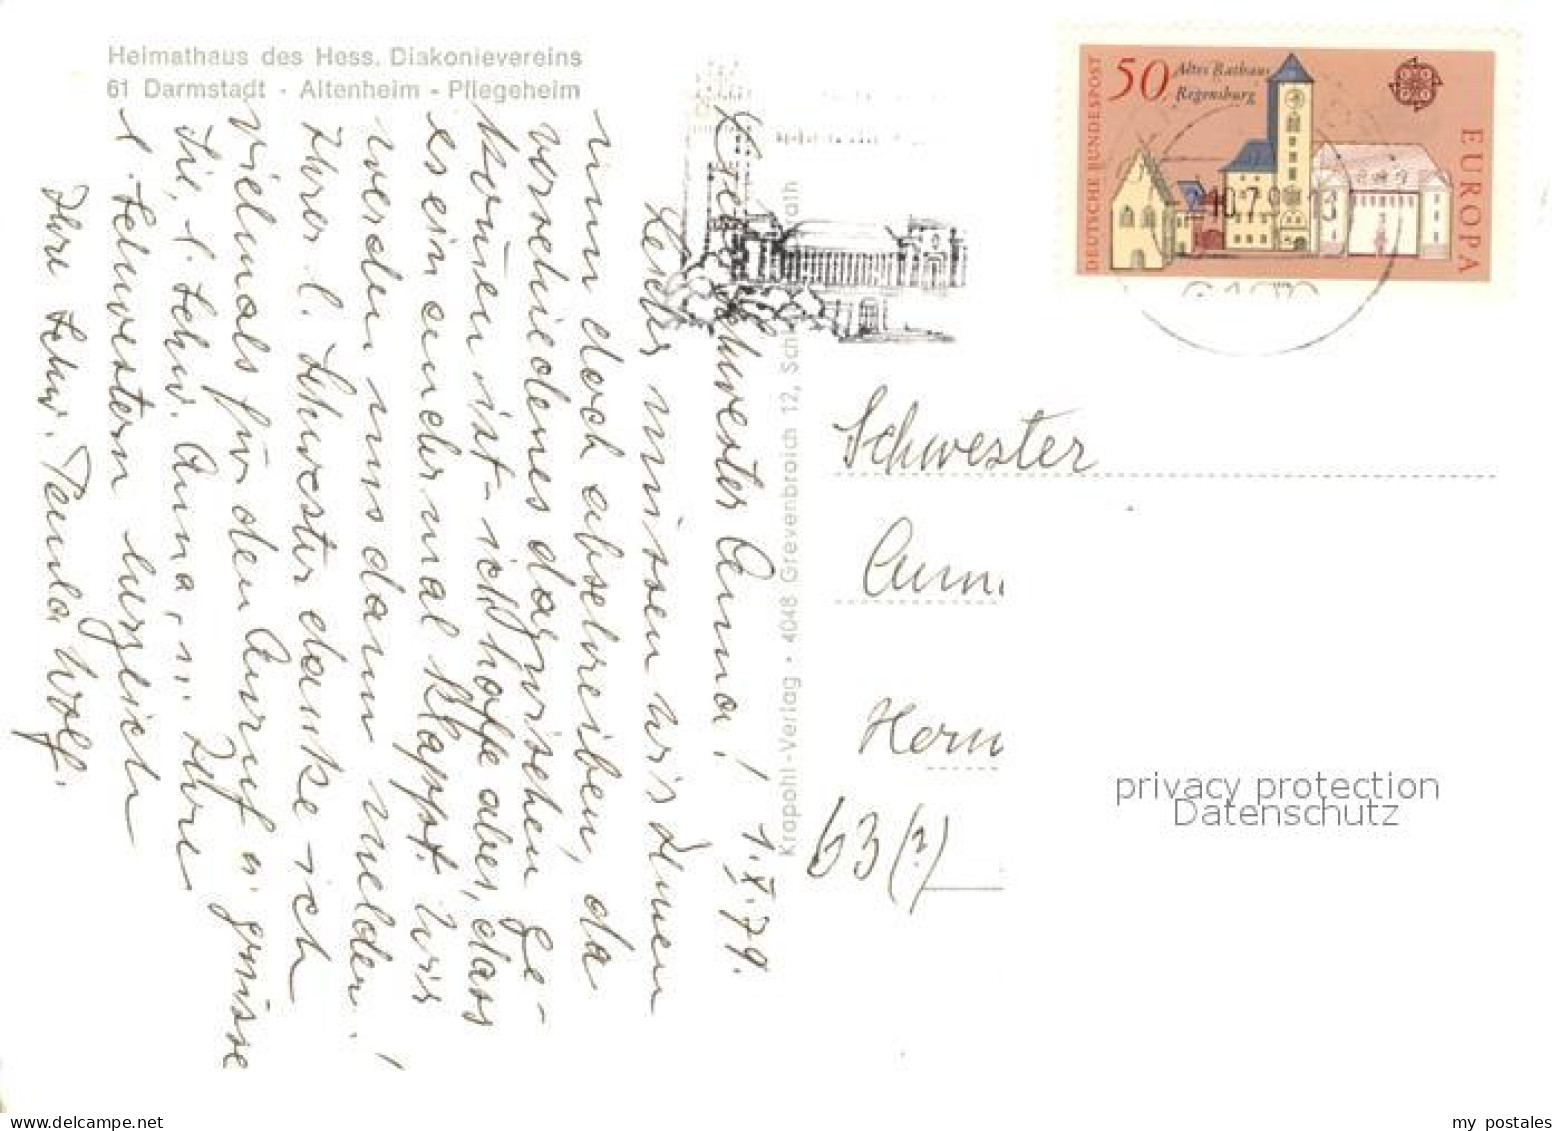 Heimathaus des Hess. Diakonievereins
61 Darmstadt - Altenheim - Pflegeheim
DEUTSCHE BUNDESPOST
50 Altes Rathaus
Regensburg
EUROPA
1.X.79.
Schwester Anna!
Leider müssen wir Ihnen
nun doch abschreiben, da
verschiedenes dazwischen ge-
kommen ist - ich hoffe aber, dass
es ein andermal klappt. Wir
werden uns dann melden.
Ihrer l. Schwester danke ich
vielmals für den Anruf u. grüsse
Sie, l. Schw. Anna, u. Ihre
l. Schwestern herzlich
Ihre Schw. Paula Wolf.
Krapohl-Verlag · 4048 Grevenbroich 12, Sch rath
Schwester
Horn
63 (?)
privacy protection
Datenschutz
my postales